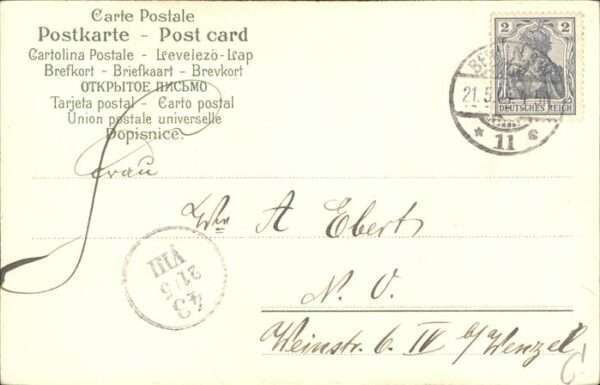 Carte Postale
Postkarte - Post card
Cartolina Postale - Levelező-Lap
Brefkort - Briefkaart - Brevkort
ОТКРЫТОЕ ПИСЬМО
Tarjeta postal - Carto postal
Union postale universelle
Dopisnice.
2 2
DEUTSCHES REICH
21.5.
* 11 c
Frau
Ww A Ebert
N. O.
Weinstr. 6. IV b/ Wenzel
VIII
21/5
43